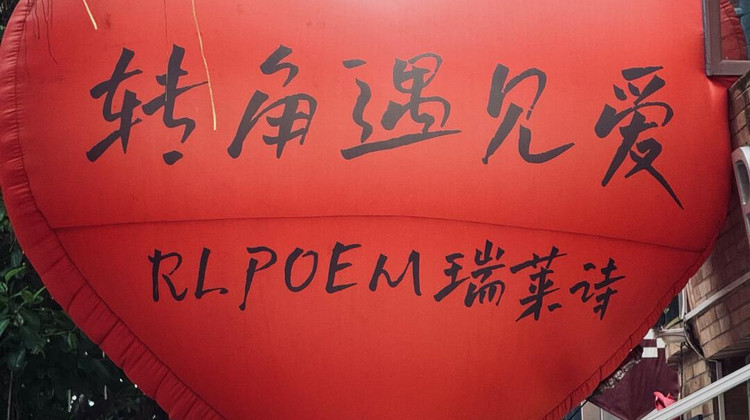 转角遇见爱
RLPOEM瑞莱诗